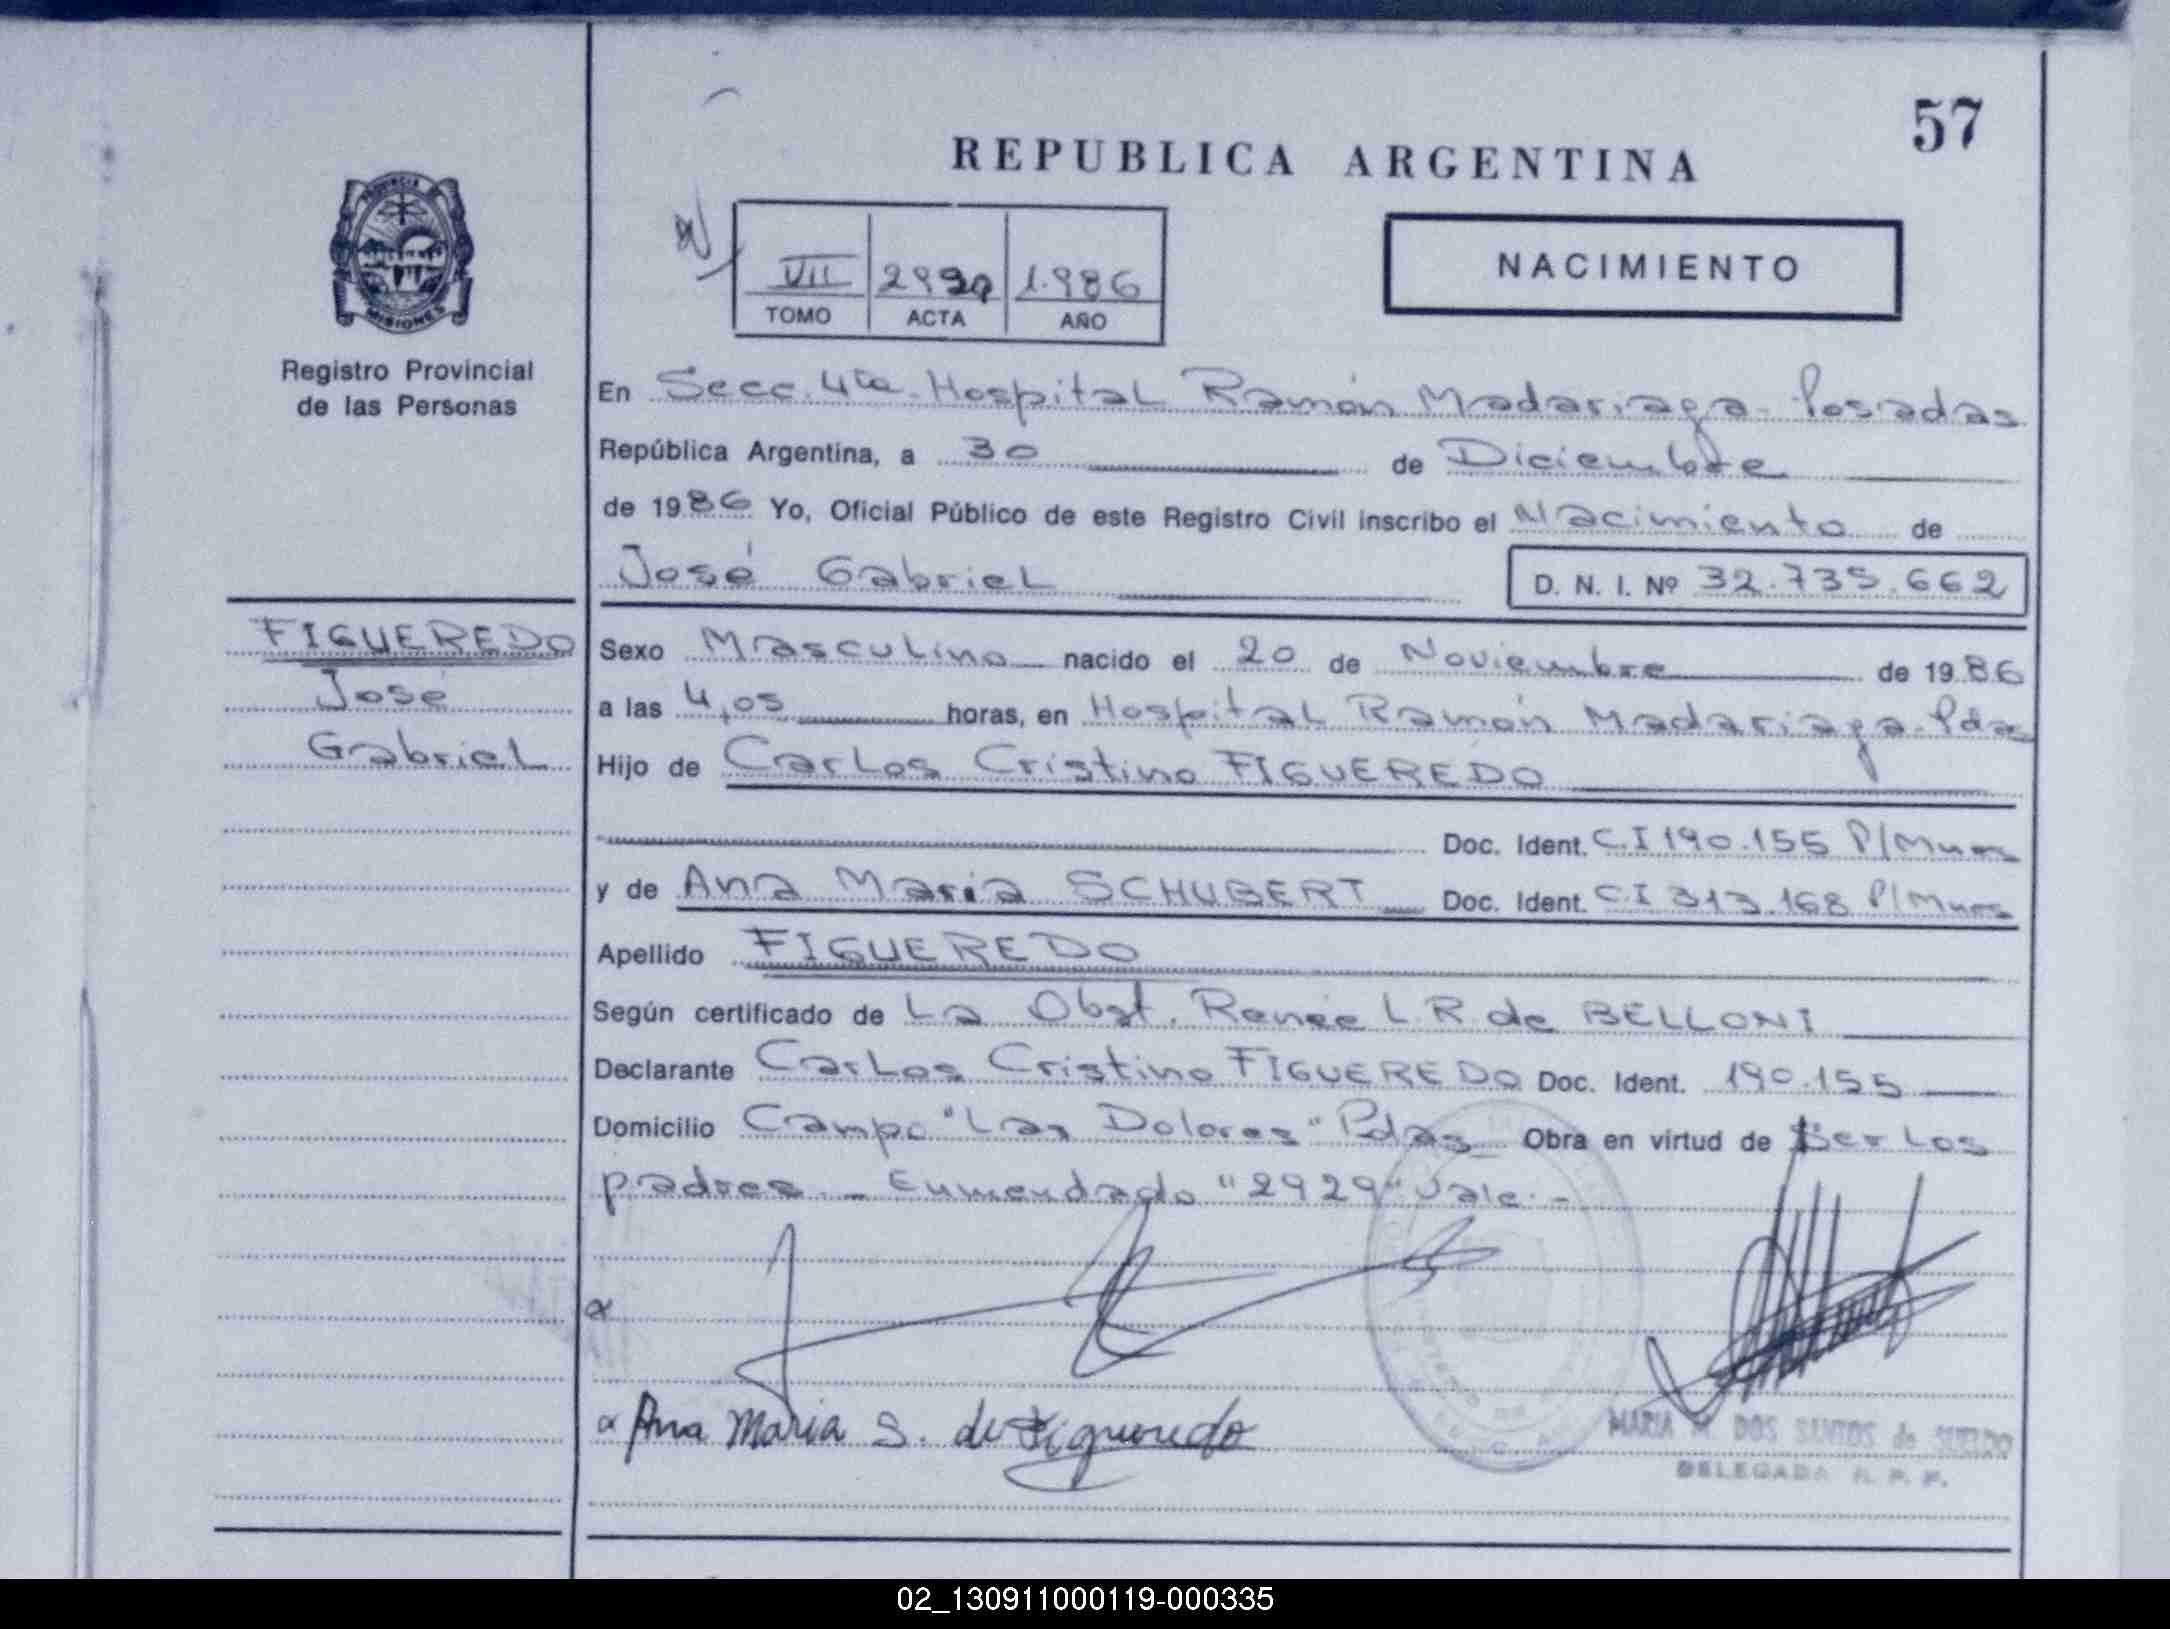 57
REPUBLICA ARGENTINA
PROVINCIA DE
MISIONES
VII 2929 1.986
TOMO ACTA AÑO
NACIMIENTO
Registro Provincial
de las Personas
En Secc. 4ta. Hospital Ramón Madariaga - Posadas
República Argentina, a 30 de Diciembre
de 1986 Yo, Oficial Público de este Registro Civil inscribo el Nacimiento de
José Gabriel D. N. I. Nº 32.735.662
FIGUEREDO
José
Gabriel
Sexo Masculino nacido el 20 de Noviembre de 1986
a las 4,05 horas, en Hospital Ramón Madariaga - Pdas
Hijo de Carlos Cristino FIGUEREDO
Doc. Ident. C.I 190.155 P/Mnes
y de Ana Maria SCHUBERT Doc. Ident. C.I 313.168 P/Mnes
Apellido FIGUEREDO
Según certificado de La Obst. Renée L. R. de BELLONI
Declarante Carlos Cristino FIGUEREDO Doc. Ident. 190.155
Domicilio Campo "Las Dolores" Pdas Obra en virtud de Ser Los
padres. - Enmendado "2929" Vale. -
Ana Maria S. de Figueredo
MARIA M. DOS SANTOS de SUELDO
DELEGADA R. P. P.
02_130911000119-000335